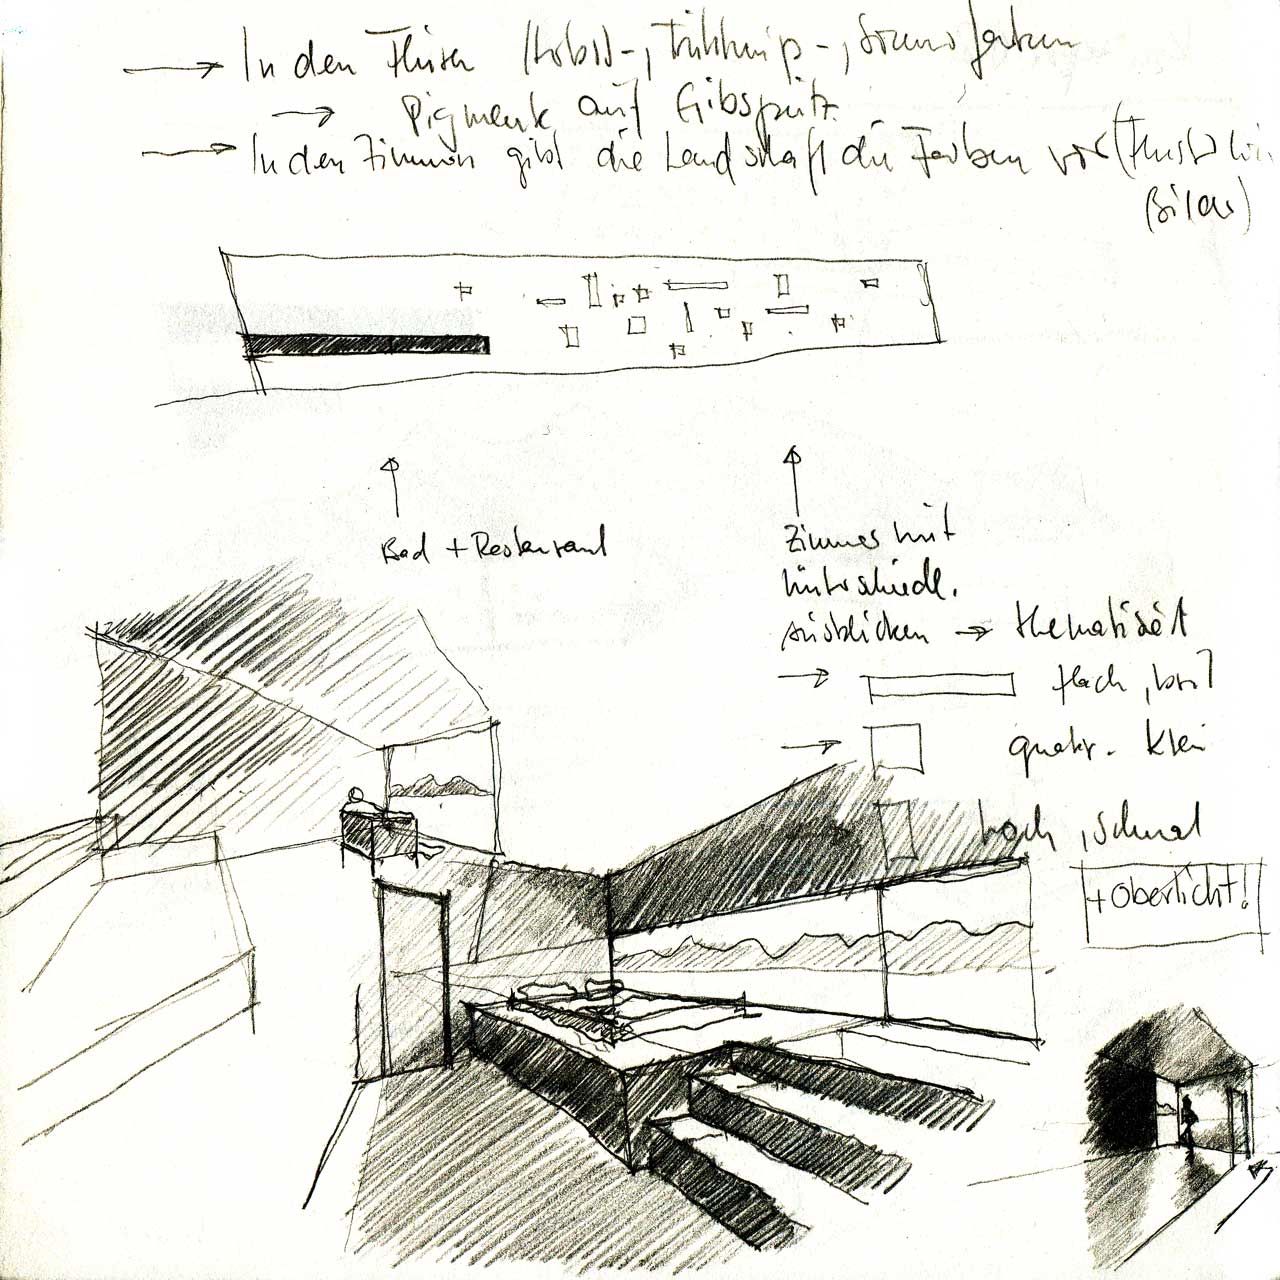 → In den Fluren Herbst-, Frühling-, Sommerfarben
→ Pigmente auf Gibsputz.
→ In den Zimmern gibt die Landschaft die Farben vor (Fenster wie
Bilder)
Bad + Restaurant
Zimmer mit
unterschiedl.
Ausblicken → thematisiert
→ flach, breit
→ quadr. klein
hoch, schmal
+ Oberlicht!